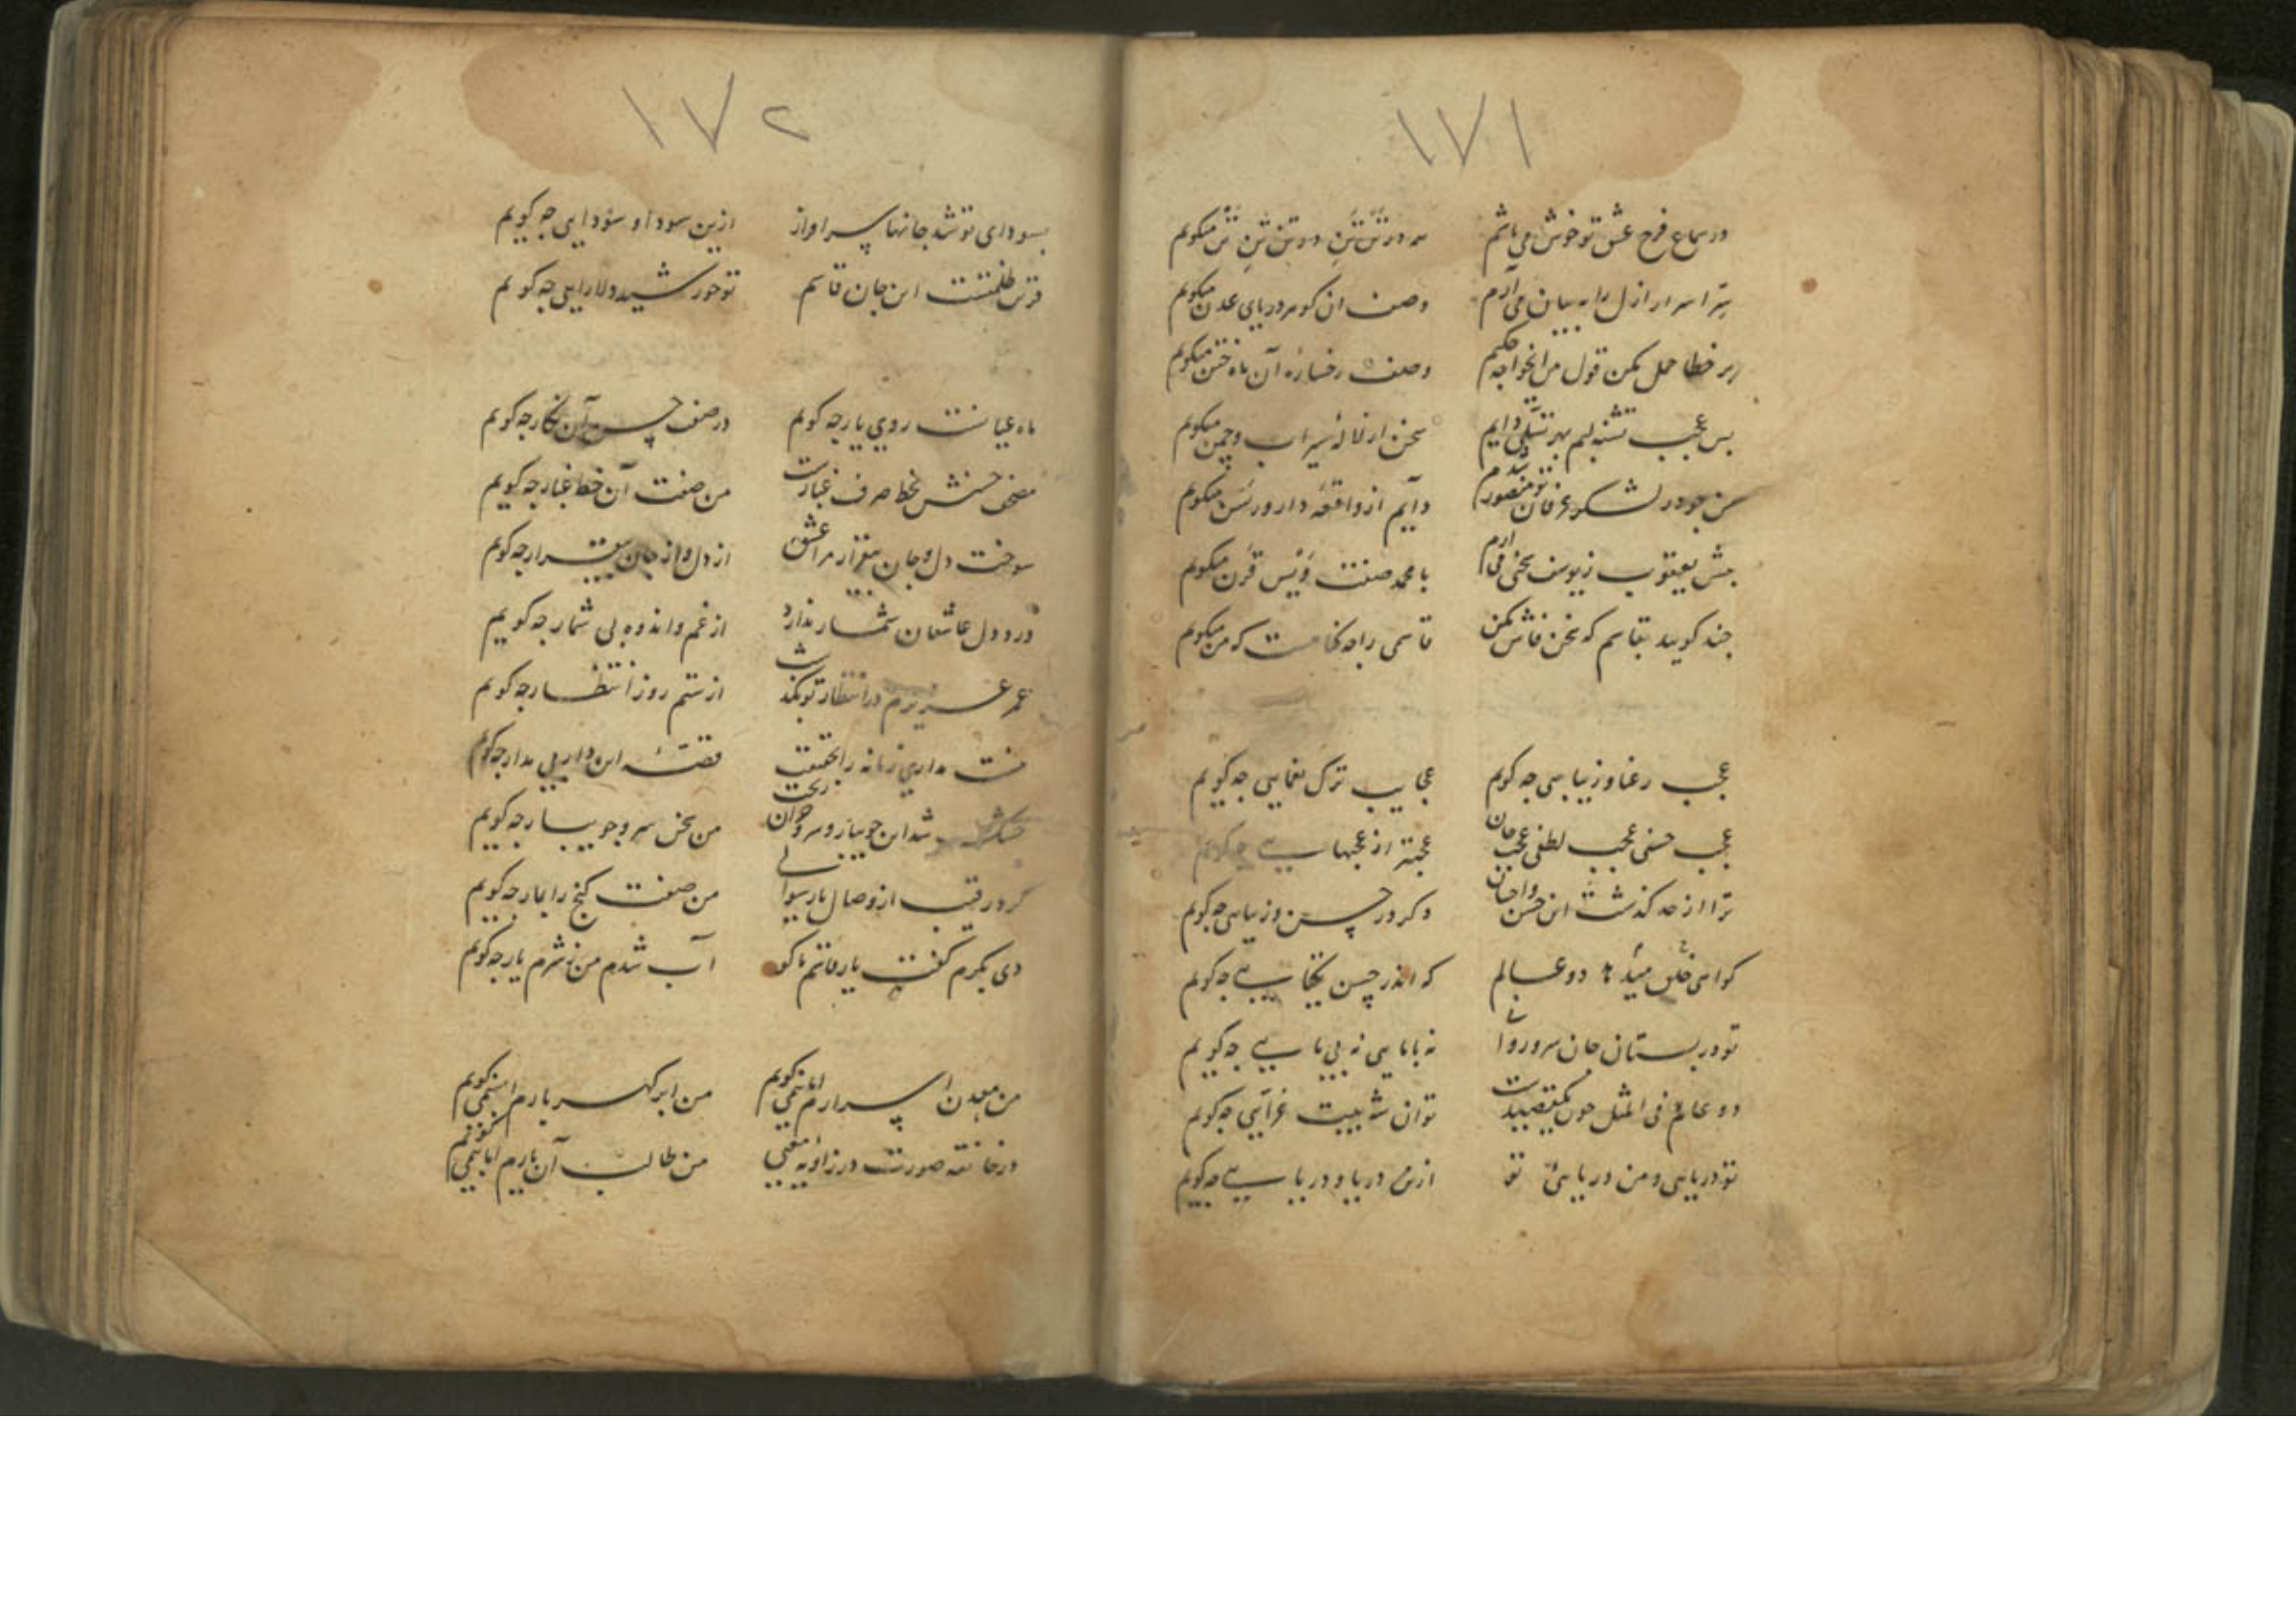 ۱۷۱
در سماع فرح عشق تو خوش می باشم
سر اسرار ازل را به بیان می آرم وصف ان کوهر دریای عدن میکویم
بر خطا حمل مکن قول من ایخواجه حکیم وصف رخساره آن ماه ختن میکویم
بس عجب تشنه لبم بهر تسلی دایم سخن از لاله سیراب و چمن میکویم
من جو در لشکر عرفان تو منصور شدم دایم از واقعه دار ورسن میکویم
بیش یعقوب ز یوسف سخنی می آرم با محمد صفت ویس قرن میکویم
جند کویید بقاسم که سخن فاش مکن قاسمی را جه کناهست که من میکویم
عجب رعنا و زیبایی جه کویم عجایب ترک یغمایی جه کویم
عجب حسنی عجب لطفی عجب جان عجبتر از عجبهایی جه کویم
ترا از حد کذشت این حسن و احسان دکر در حسن و زیبایی جه کویم
کواهی خلق میدهد دو عالم که اندر حسن یکتایی جه کویم
تو در بستان جان سرو روانی نه بامایی نه بی مایی جه کویم
دو عالم فی المثل جون یک قصیدست تو ان شه بیت غرایی جه کویم
تو دریایی و من دریایی تو ازین دریا و دریایی جه کویم
۱۷۲
بسودای تو شد جانها سرافراز ازین سودا و سودایی جه کویم
قرین ظلمتست این جان قاسم تو خورشید دلارایی جه کویم
ماه عیانست روی یار جه کویم در صفت حسن آن نکار جه کویم
مصحف حسنش بخط صرف غبارست من صفت آن خط غبار جه کویم
سوخت دل و جان بیقرار مرا عشق از دل و از جان بیقرار جه کویم
درد دل عاشقان شمار ندارد از غم و اندوه بی شمار جه کویم
عمر عزیزم در انتظار تو بکذشت از ستم روز انتظار جه کویم
نیست مداری زمانه را بحقیقت قصه این دار بی مدار جه کویم
خشک شد این جویبار و سرو روان ریخت من سخن سرو جویبار جه کویم
کر در قیب از وصال یار من صفت کنج را بمار جه کویم
دی بکرم کفت یار قاسم ما کو آب شدم من ز شرم یار جه کویم
من معدن اسرارم اما نمی کویم من ابر کهربارم اما نمی کویم
در خانقه صورت در زاویه معنی من طالب آن یارم اما نمی کویم